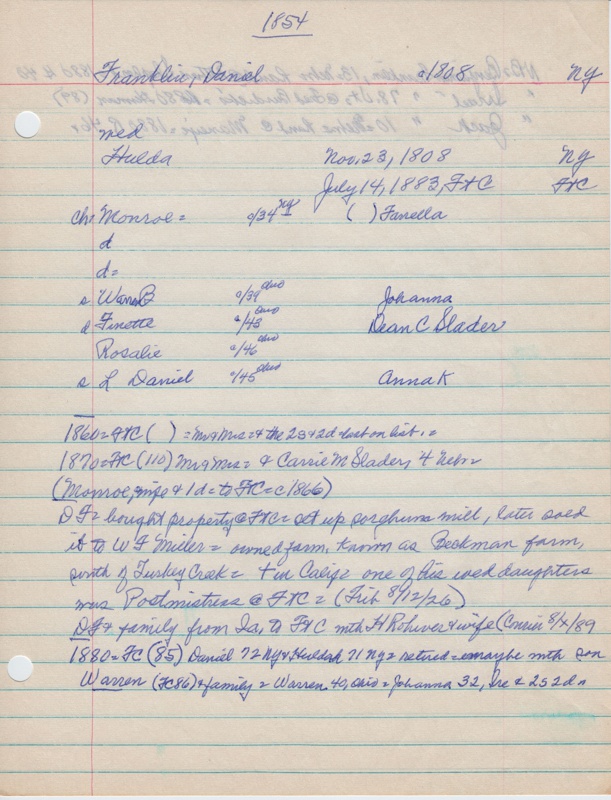 1854
Franklin, Daniel c1808 NY
wed
Hulda Nov, 23, 1808 NY
July 14, 1883, F+C F+C
Ch: Monroe = c/34 NY ( ) Fanella
d
d =
s Warren B c/39 Ohio Johanna
d Finette c/43 Ohio Dean C Slader
Rosalie c/46 Ohio
s L Daniel c/45 Ohio Anna K
1860 = F+C ( ) = Mr + Mrs = + the 2s + 2d = last on list. =
1870 = F+C (110) Mr + Mrs = & Carrie M Slader, 4 Nebr =
(Monroe, wife + 1d = to F+C = c1866)
D F = bought property @ F+C = set up sorghum mill, later sold
it to W F Miller = owned farm, known as Beckman farm,
south of Turkey Creek = + in Calif = one of his wed daughters
was Postmistress @ F+C = (Trib 8/12/26)
D F + family from Ia, to F+C with H Rohwer + wife (Courier 8/1/89
1880 = FC (85) Daniel 72 NY + Huldah 71 NY = retired = maybe with son
Warren (FC86) + family = Warren 40, Ohio = Johanna 32, Ire & 2s 2d =